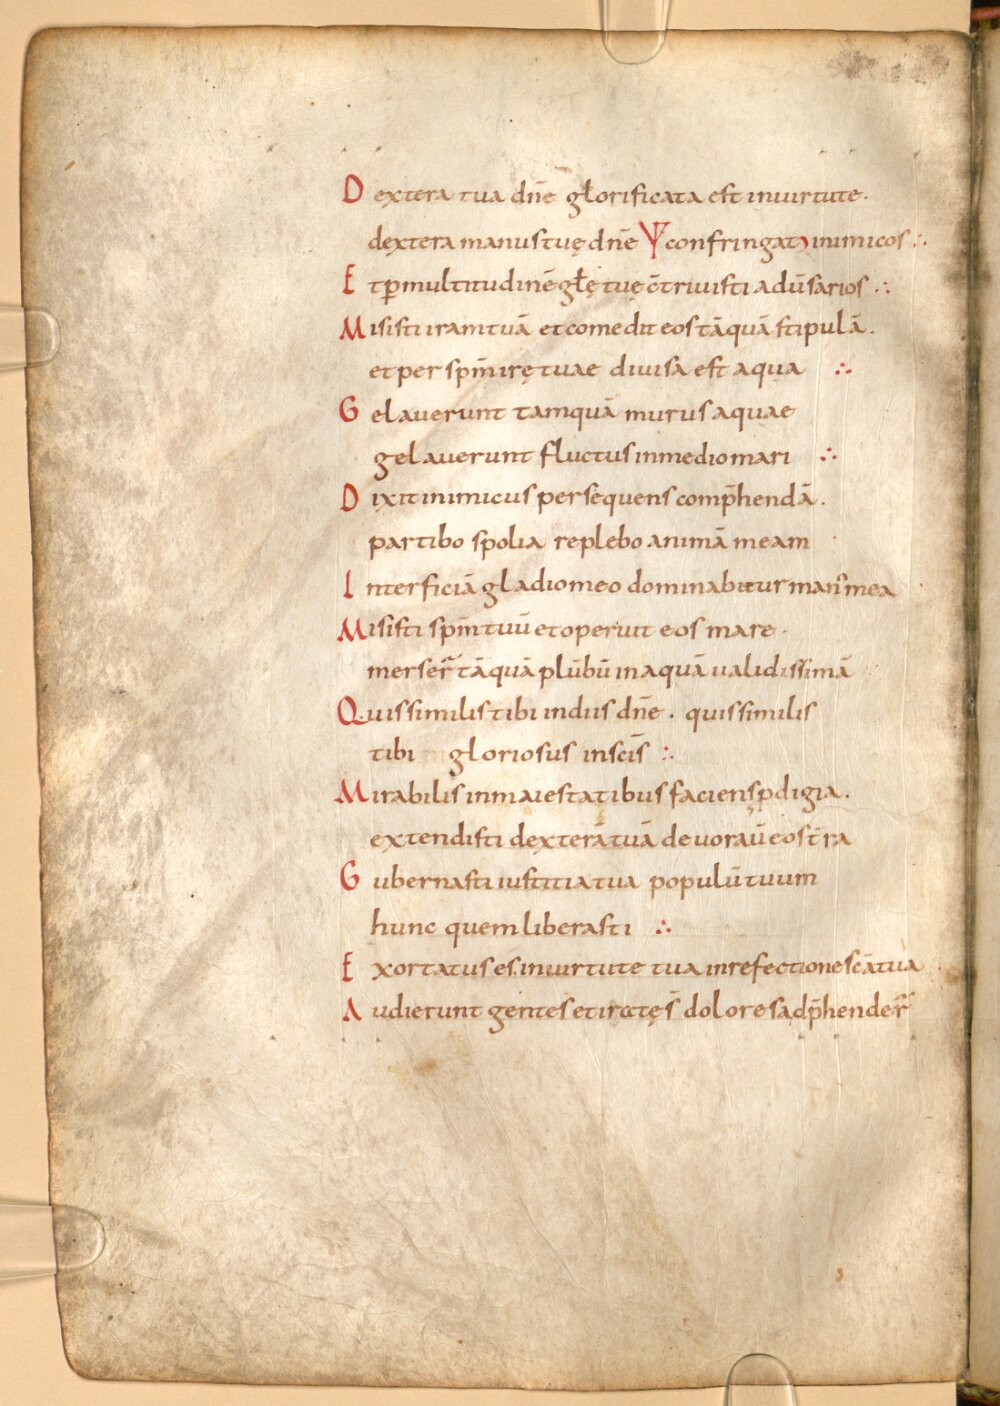 Dextera tua dn̄e glorificata est inuirtute.
dextera manus tuę dn̄e ℣ confringat inimicos ∴
Et ꝑmultitudinē głę tuę c̄triuisti adūsarios ∴
Misisti iram tuā et comedit eos tāquā stipulā.
et per spm̄ irę tuae diuisa est aqua ∴
Gelauerunt tamquā murus aquae
gelauerunt fluctus inmedio mari ∴
Dixit inimicus persequens comp̄hendā.
partibo spolia replebo animā meam
Interficiā gladio meo dominabitur man' mea
Misisti spm̄ tuū et operuit eos mare.
merser̄ tāquā plūbū in aquā ualidissimā
Quis similis tibi in diis dn̄e. quis similis
tibi gloriosus in sc̄is ∴
Mirabilis in maiestatibus faciens ꝓdigia.
extendisti dexterā tuā deuoraū eos t̄ra
Gubernasti iustitia tua populū tuum
hunc quem liberasti ∴
Exortatus es in uirtute tua in refectione sc̄a tua
Audierunt gentes et iratę s̄ dolores adp̄hender̄